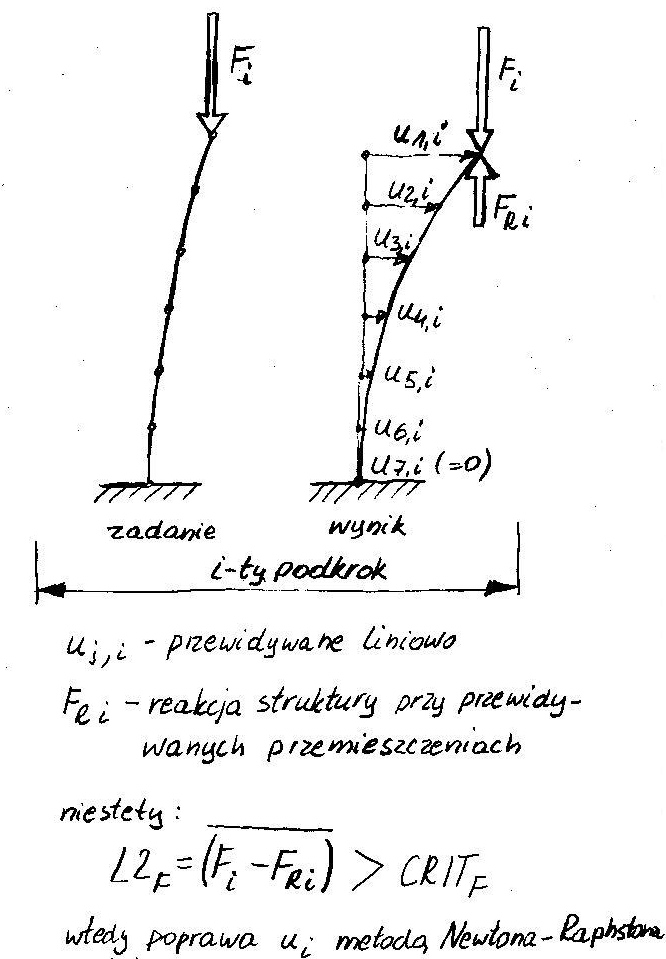 F_i
F_i
u_1,i
F_Ri
u_2,i
u_3,i
u_4,i
u_5,i
u_6,i
u_7,i (=0)
zadanie
wynik
i-ty podkrok
u_j,i - przewidywane liniowo
F_Ri - reakcja struktury przy przewidy-
wanych przemieszczeniach
niestety:
L2_F = (F_i - F_Ri) > CRIT_F
wtedy poprawa u_i metodą Newtona-Raphstona